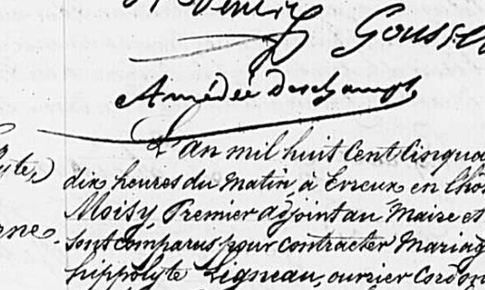 Goussel
Amédée deschamps
L'an mil huit Cent Cinqua
dix heures du Matin, à Evreux en l'hô
Moisy, Premier adjoint au Maire et
Sont comparus pour contracter Mariag
hippolyte Ligneau, ouvrier Cordon